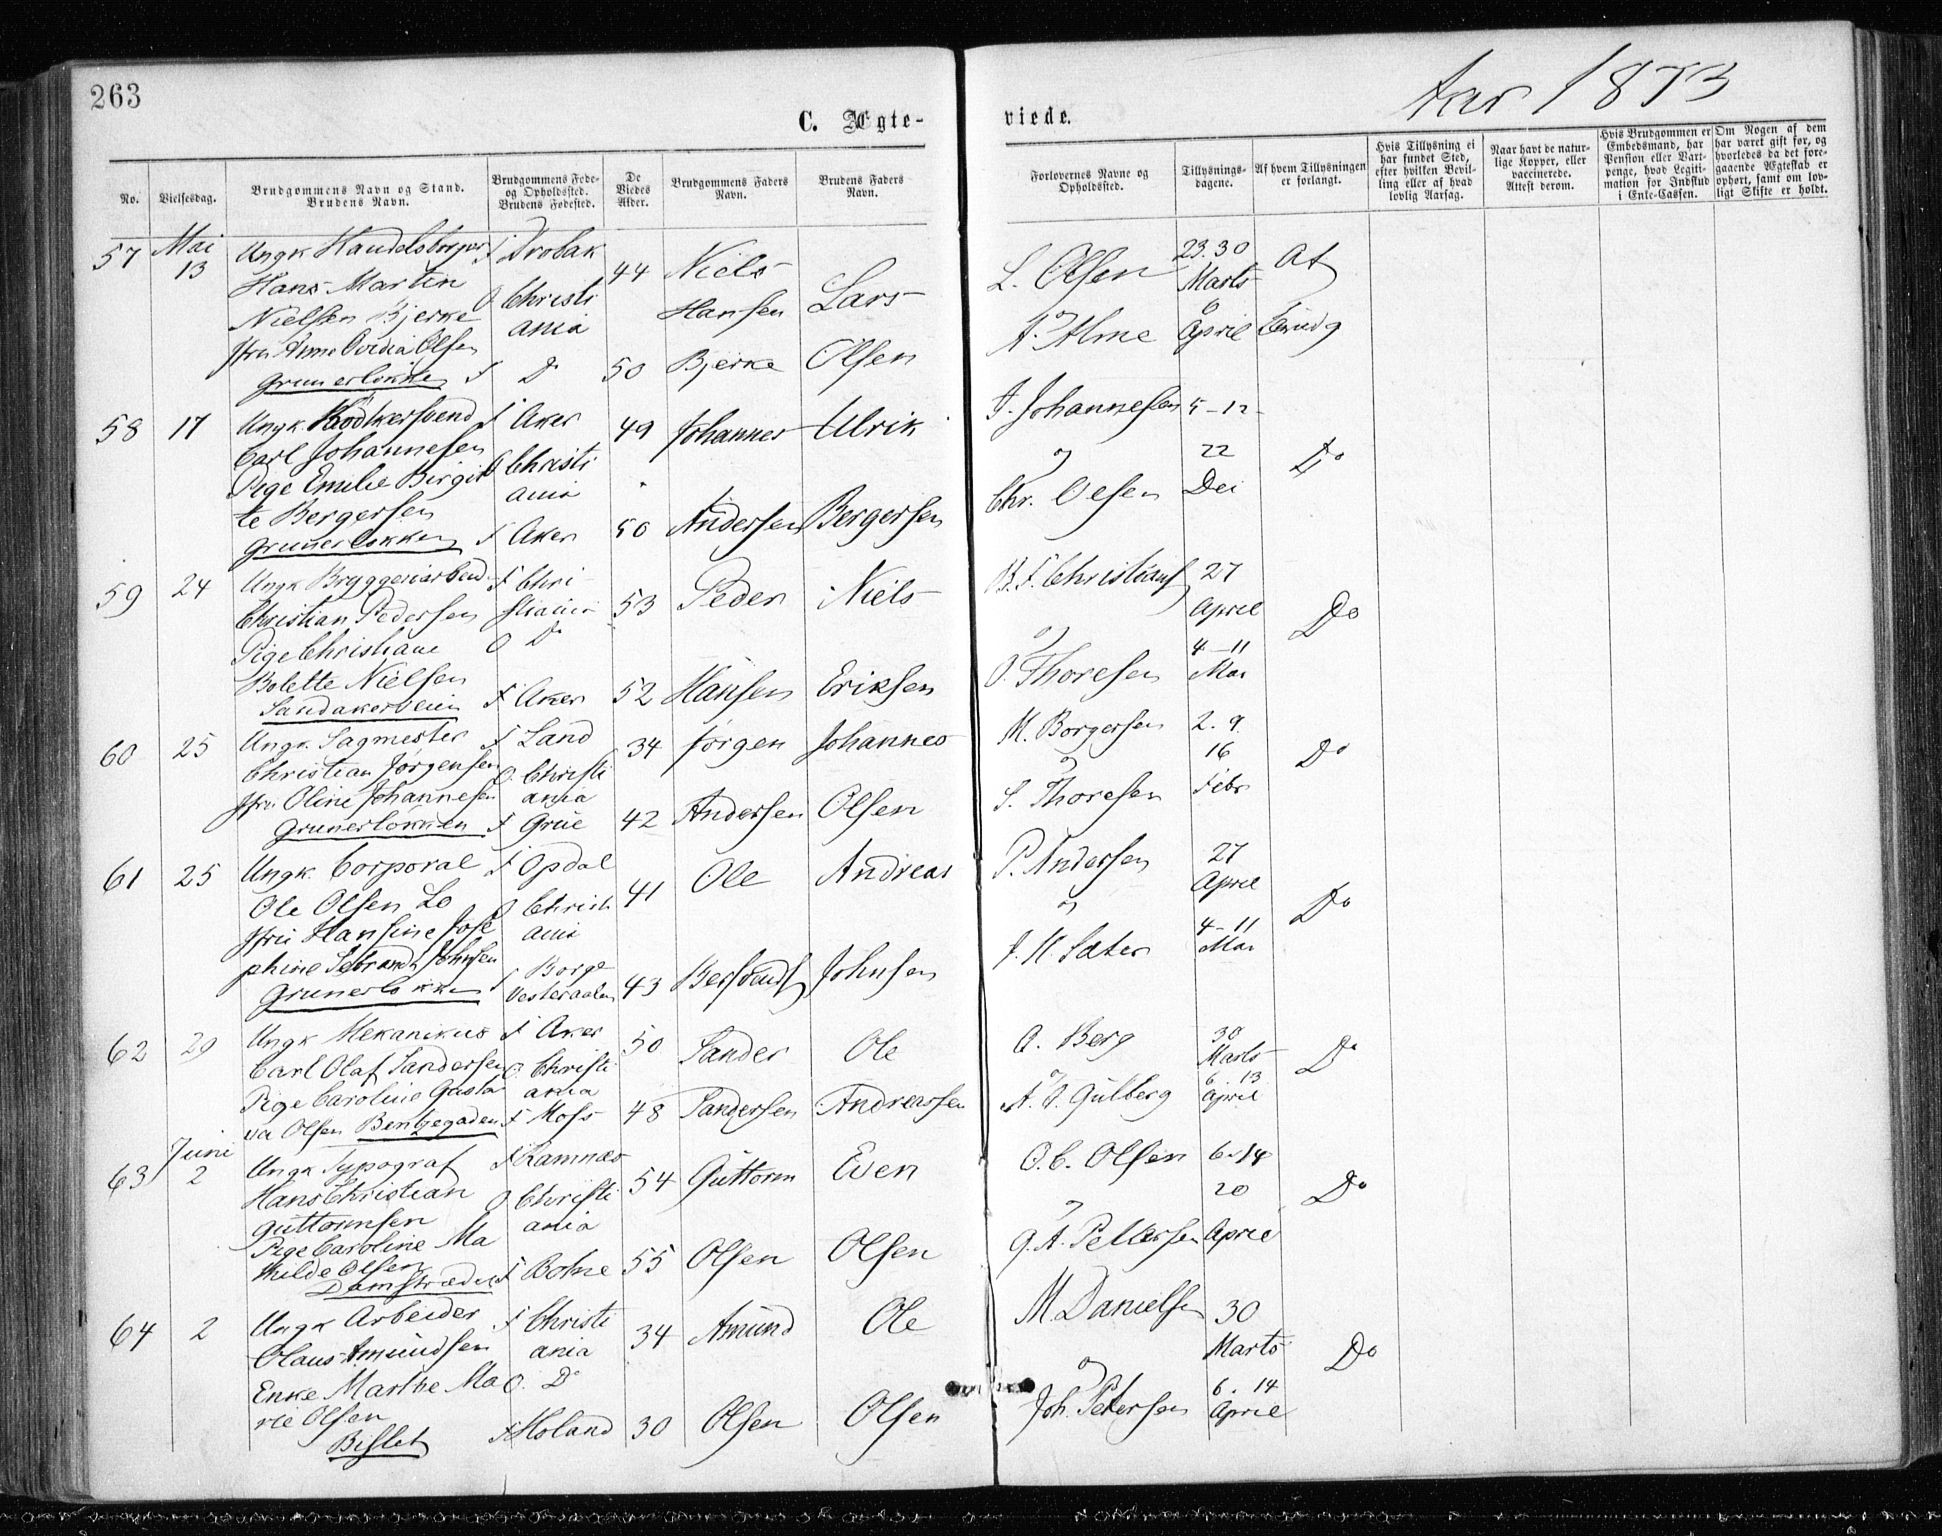 263
Aar 1873
C. Ægte-
viede.
No.
Vielsesdag.
Brudgommens Navn og Stand.
Brudens Navn.
Brudgommens Føde-
og Opholdssted.
Brudens Fødested.
De
Viedes
Alder.
Brudgommens Faders
Navn.
Brudens Faders
Navn.
Forlovernes Navne og
Opholdssted.
Tillysnings-
dagene.
Af hvem Tillysningen
er forlangt.
Hvis Tillysning ei
har fundet Sted,
efter hvilken Bevil-
ling eller af hvad
lovlig Aarsag.
Naar havt de natur-
lige Kopper, eller
vaccinerede.
Attest derom.
Hvis Brudgommen er
Embedsmand, har
Pension eller Vart-
penge, hvad Legiti-
mation for Indskud
i Enke-Cassen.
Om Nogen af dem
har været gift før, og
hvorledes da det fore-
gaaende Ægteskab er
ophørt, samt om lov-
ligt Skifte er holdt.
57 Mai 13
Ungk Handelsborger
Hans Martin
Nielsen Bjerke
Jfru Anne Ovidia Olsen
Grunerløkken
F Drøbak
O Christi
ania
F Do
44
50
Niels
Hansen
Bjerke
Lars
Olsen
L. Olsen
A. Alme
23. 30
Marts
6
April
Af
Brudg
58 17
Ungk. Kodkersvend
Carl Johannesen
Pige Emilie Birgit
te Bergersen
Grunerløkken
F Aker
O Christi
ania
F Aker
49
50
Johannes
Andersen
Ulrik
Bergersen
J. Johannesen
Chr. Olsen
5-12
22
Do
59 24
Ungk Bryggeriarbeid
Christian Pedersen
Pige Christiane
Bolette Nielsen
Sandakerveien
F Chri
stiania
O Do
F Aker
53
52
Peder
Hansen
Niels
Eriksen
B. F. Christians
O. Thoresen
27
April
4-11
Mai
Do
60 25
Ungk. Sagmester
Christian Jørgensen
Jfru Oline Johannesen
Grunerløkken
F Land
O. Christi
ania
F Grue
34
42
Jørgen
Andersen
Johannes
Olsen
M. Borgersen
S. Thoresen
2. 9.
16
Febr
Do
61 25
Ungk. Corporal
Ole Olsen Lo
Jfru Hansine Jose
phine Sebrandt Johnsen
Grunerløkken
F Opdal
O Christi
ania
F Borge
Vesteraalen
41
43
Ole
Andreas
Johnsen
P. Andersen
J. H. Sæter
27
April
4-11
Mai
Do
62 29
Ungk Mekanikus
Carl Olaf Sandersen
Pige Caroline Gusta
va Olsen Bentzegaden
F Aker
O. Christi
ania
F Moss
50
48
Sander
Sandersen
Ole
Andreassen
O. Berg
A. O. Gulberg
30
Marts
6. 13
April
Do
63 Juni 2
Ungk Typograf
Hans Christian
Guttormsen
Pige Caroline Ma
thilde Olsen
Damstrædet
F Ramnæs
O Christi
ania
F Botne
54
55
Guttorm
Olsen
Even
Olsen
O. C. Olsen
G. A. Pettersen
6-14
20
April
Do
64 2
Ungk Arbeider
Olaus Amundsen
Enke Marthe Ma
rie Olsen
Bislet
F Christi
ania
O. Do
F Høland
34
30
Amund
Olsen
Ole
Olsen
M. Danielsen
Joh. Petersen
30
Marts
6. 14
April
Do